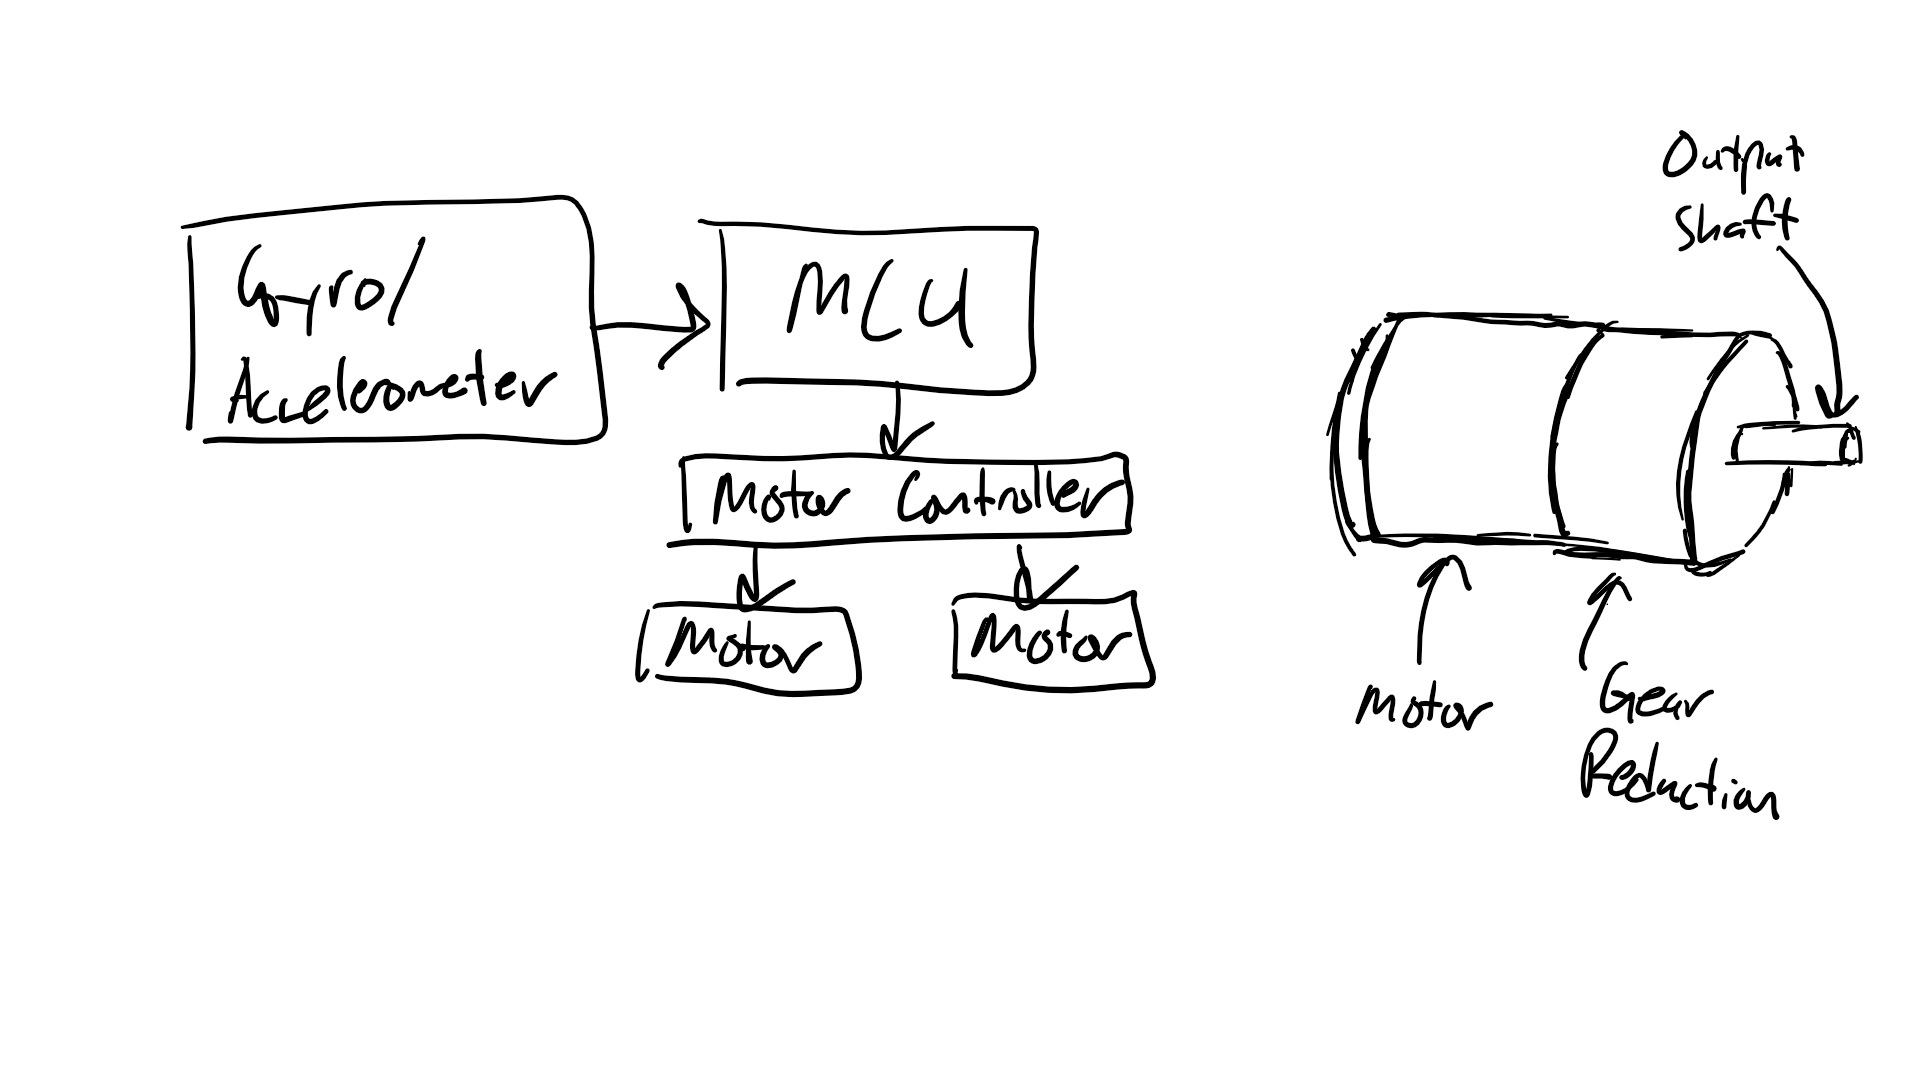 Gyro/
Accelerometer
MCU
Motor Controller
Motor
Motor
Output
Shaft
Motor
Gear
Reduction